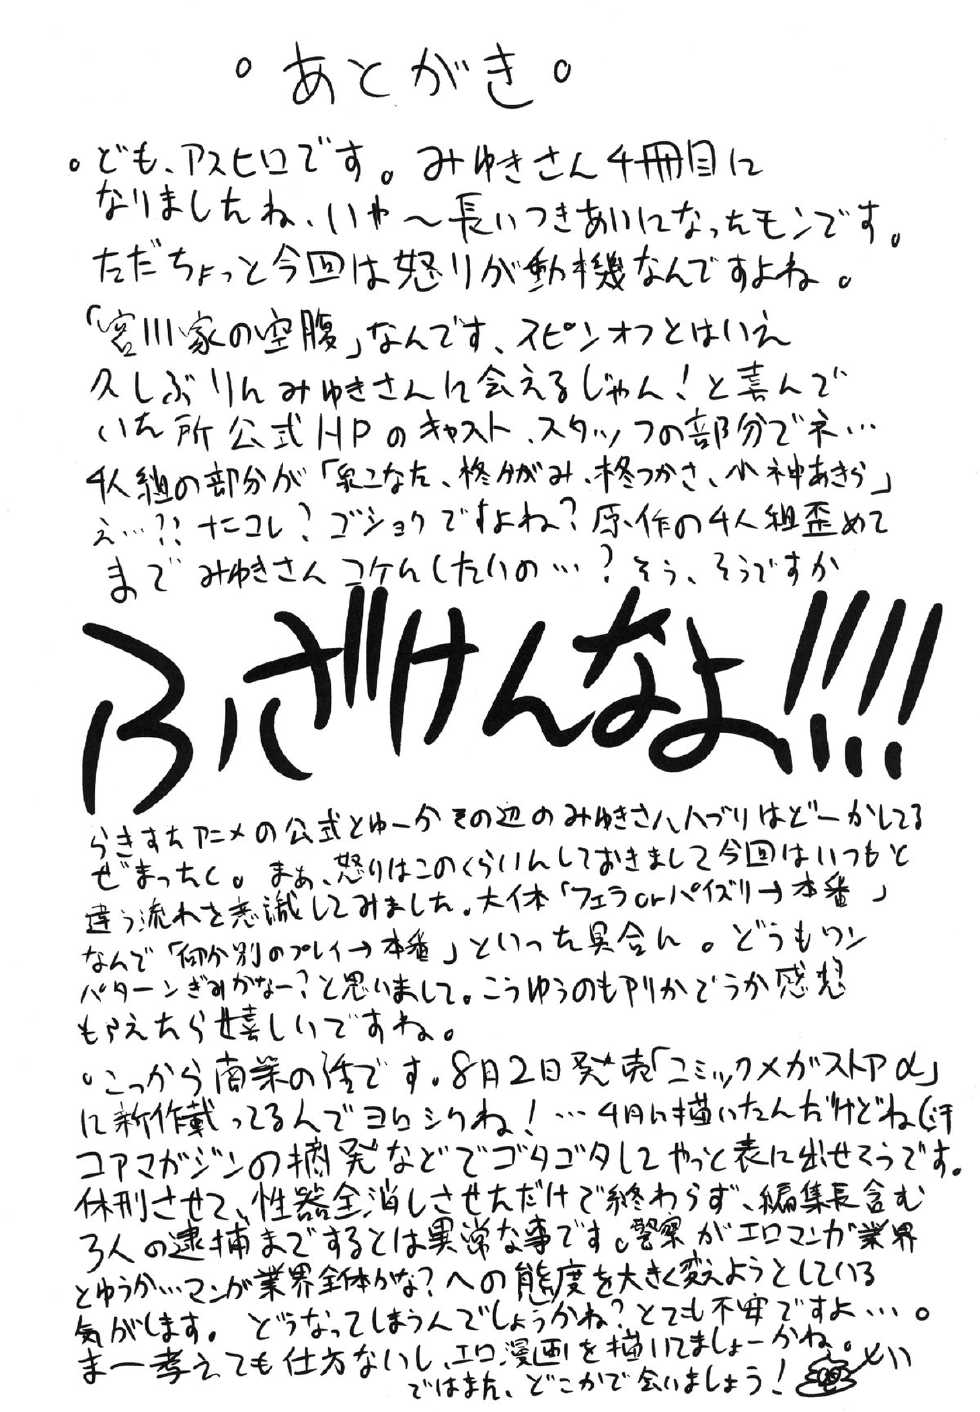 。あとがき。
。ども、アスヒロです。みゆきさん4冊目に
なりましたね、いや〜長いつきあいになったモンです。
ただちょっと今回は怒りが動機なんですよね。
「宮川家の空腹」なんです、スピンオフとはいえ
久しぶりにみゆきさんに会えるじゃん!と喜んで
いた所公式HPのキャスト、スタッフの部分でネ…
4人組の部分が「泉こなた、柊かがみ、柊つかさ、小神あきら」
え…?!ナニコレ?ゴショクですよね?原作の4人組歪めて
までみゆきさんコケにしたいの…?そう、そうですか
ふざけんなよ!!!!
らきすたアニメの公式とゆーかその辺のみゆきさんハブりはどーかしてる
ぜまったく。まぁ、怒りはこのくらいにしておきまして今回はいつもと
違う流れを意識してみました。大体「フェラorパイズリ→本番」
なんで「部分別のプレイ→本番」といった具合に。どうもワン
パターンぎみかなー?と思いまして。こうゆうのもアリかどうか感想
もらえたら嬉しいですね。
。こっから商業の話です。8月2日発売「コミックメガストアα」
に新作載ってるんでヨロシクね!…4月に描いたんだけどね(汗
コアマガジンの摘発などでゴタゴタしてやっと表に出せそうです。
休刊させて、性器全消しさせただけで終わらず、編集長含む
3人の逮捕までするとは異常な事です。警察がエロマンガ業界
とゆうか…マンガ業界全体かな?への態度を大きく変えようとしている
気がします。どうなってしまうんでしょうかね?とても不安ですよ…。
ま一考えても仕方ないし、エロ漫画を描いてましょーかね。
ではまた、どこかで会いましょう!